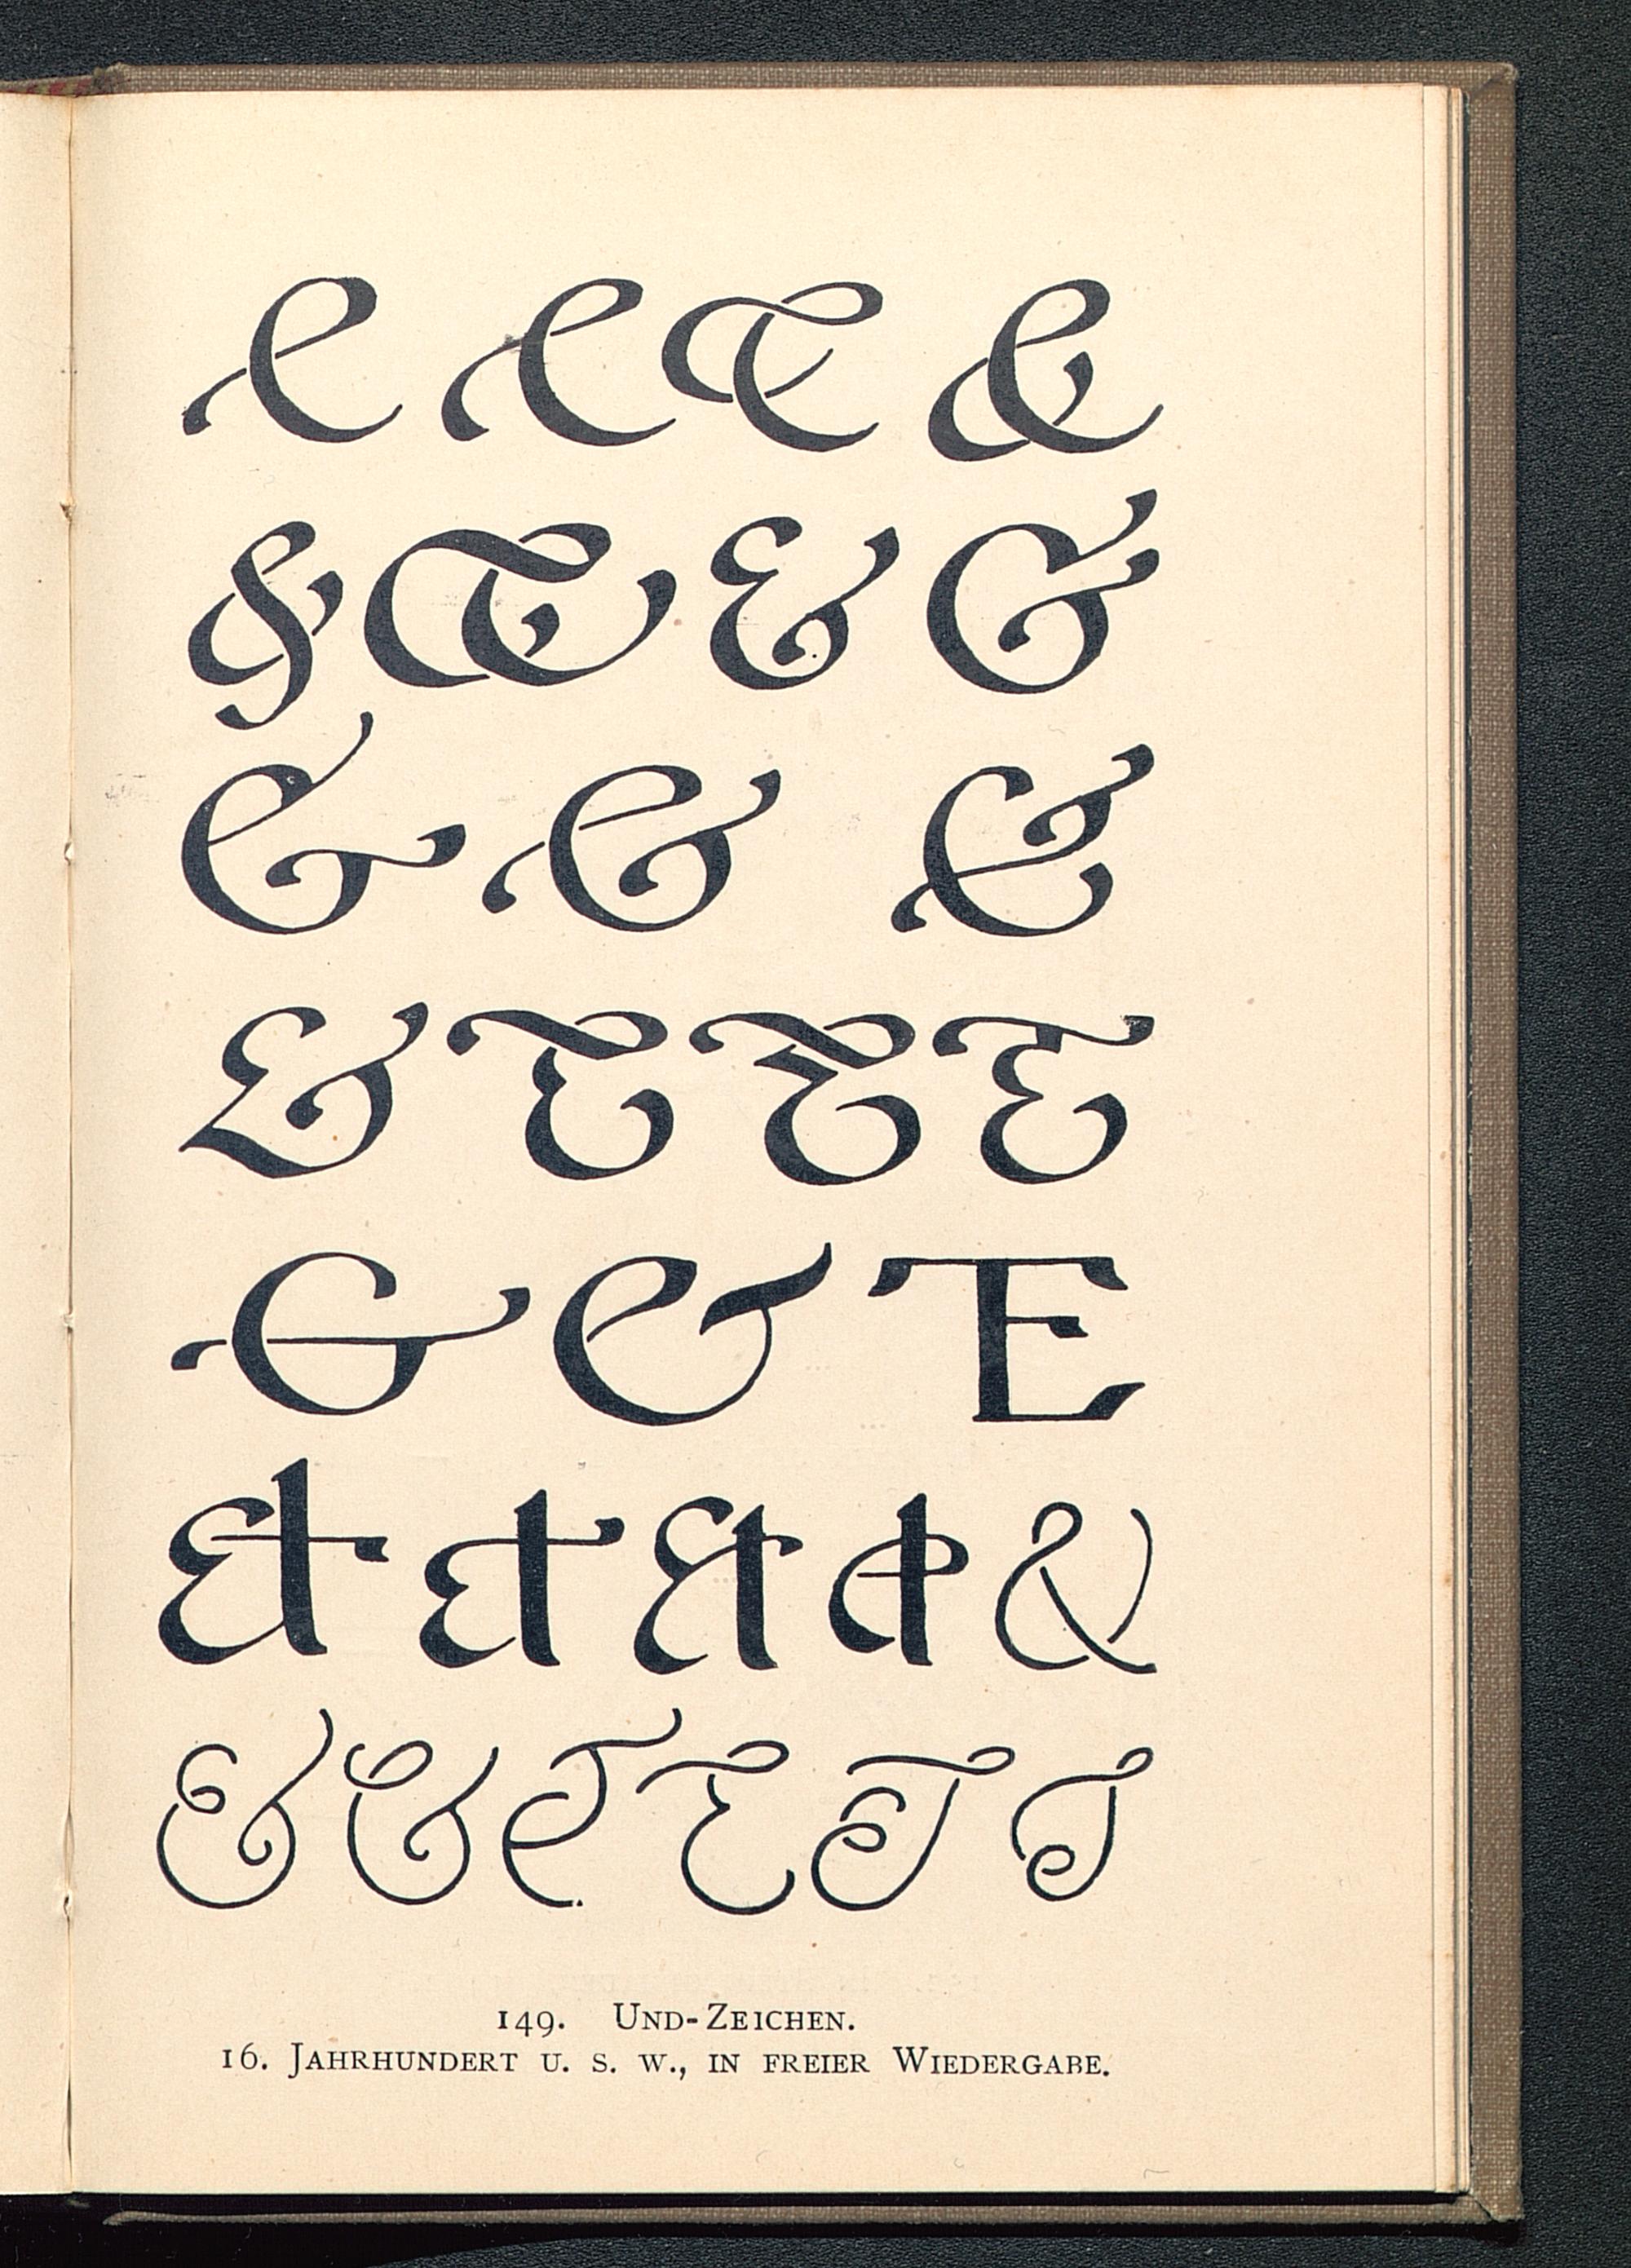 & & & &
& & & &
& & &
& & & &
& & &
& & & & &
& & & & & &
149. Und-Zeichen.
16. Jahrhundert u. s. w., in freier Wiedergabe.